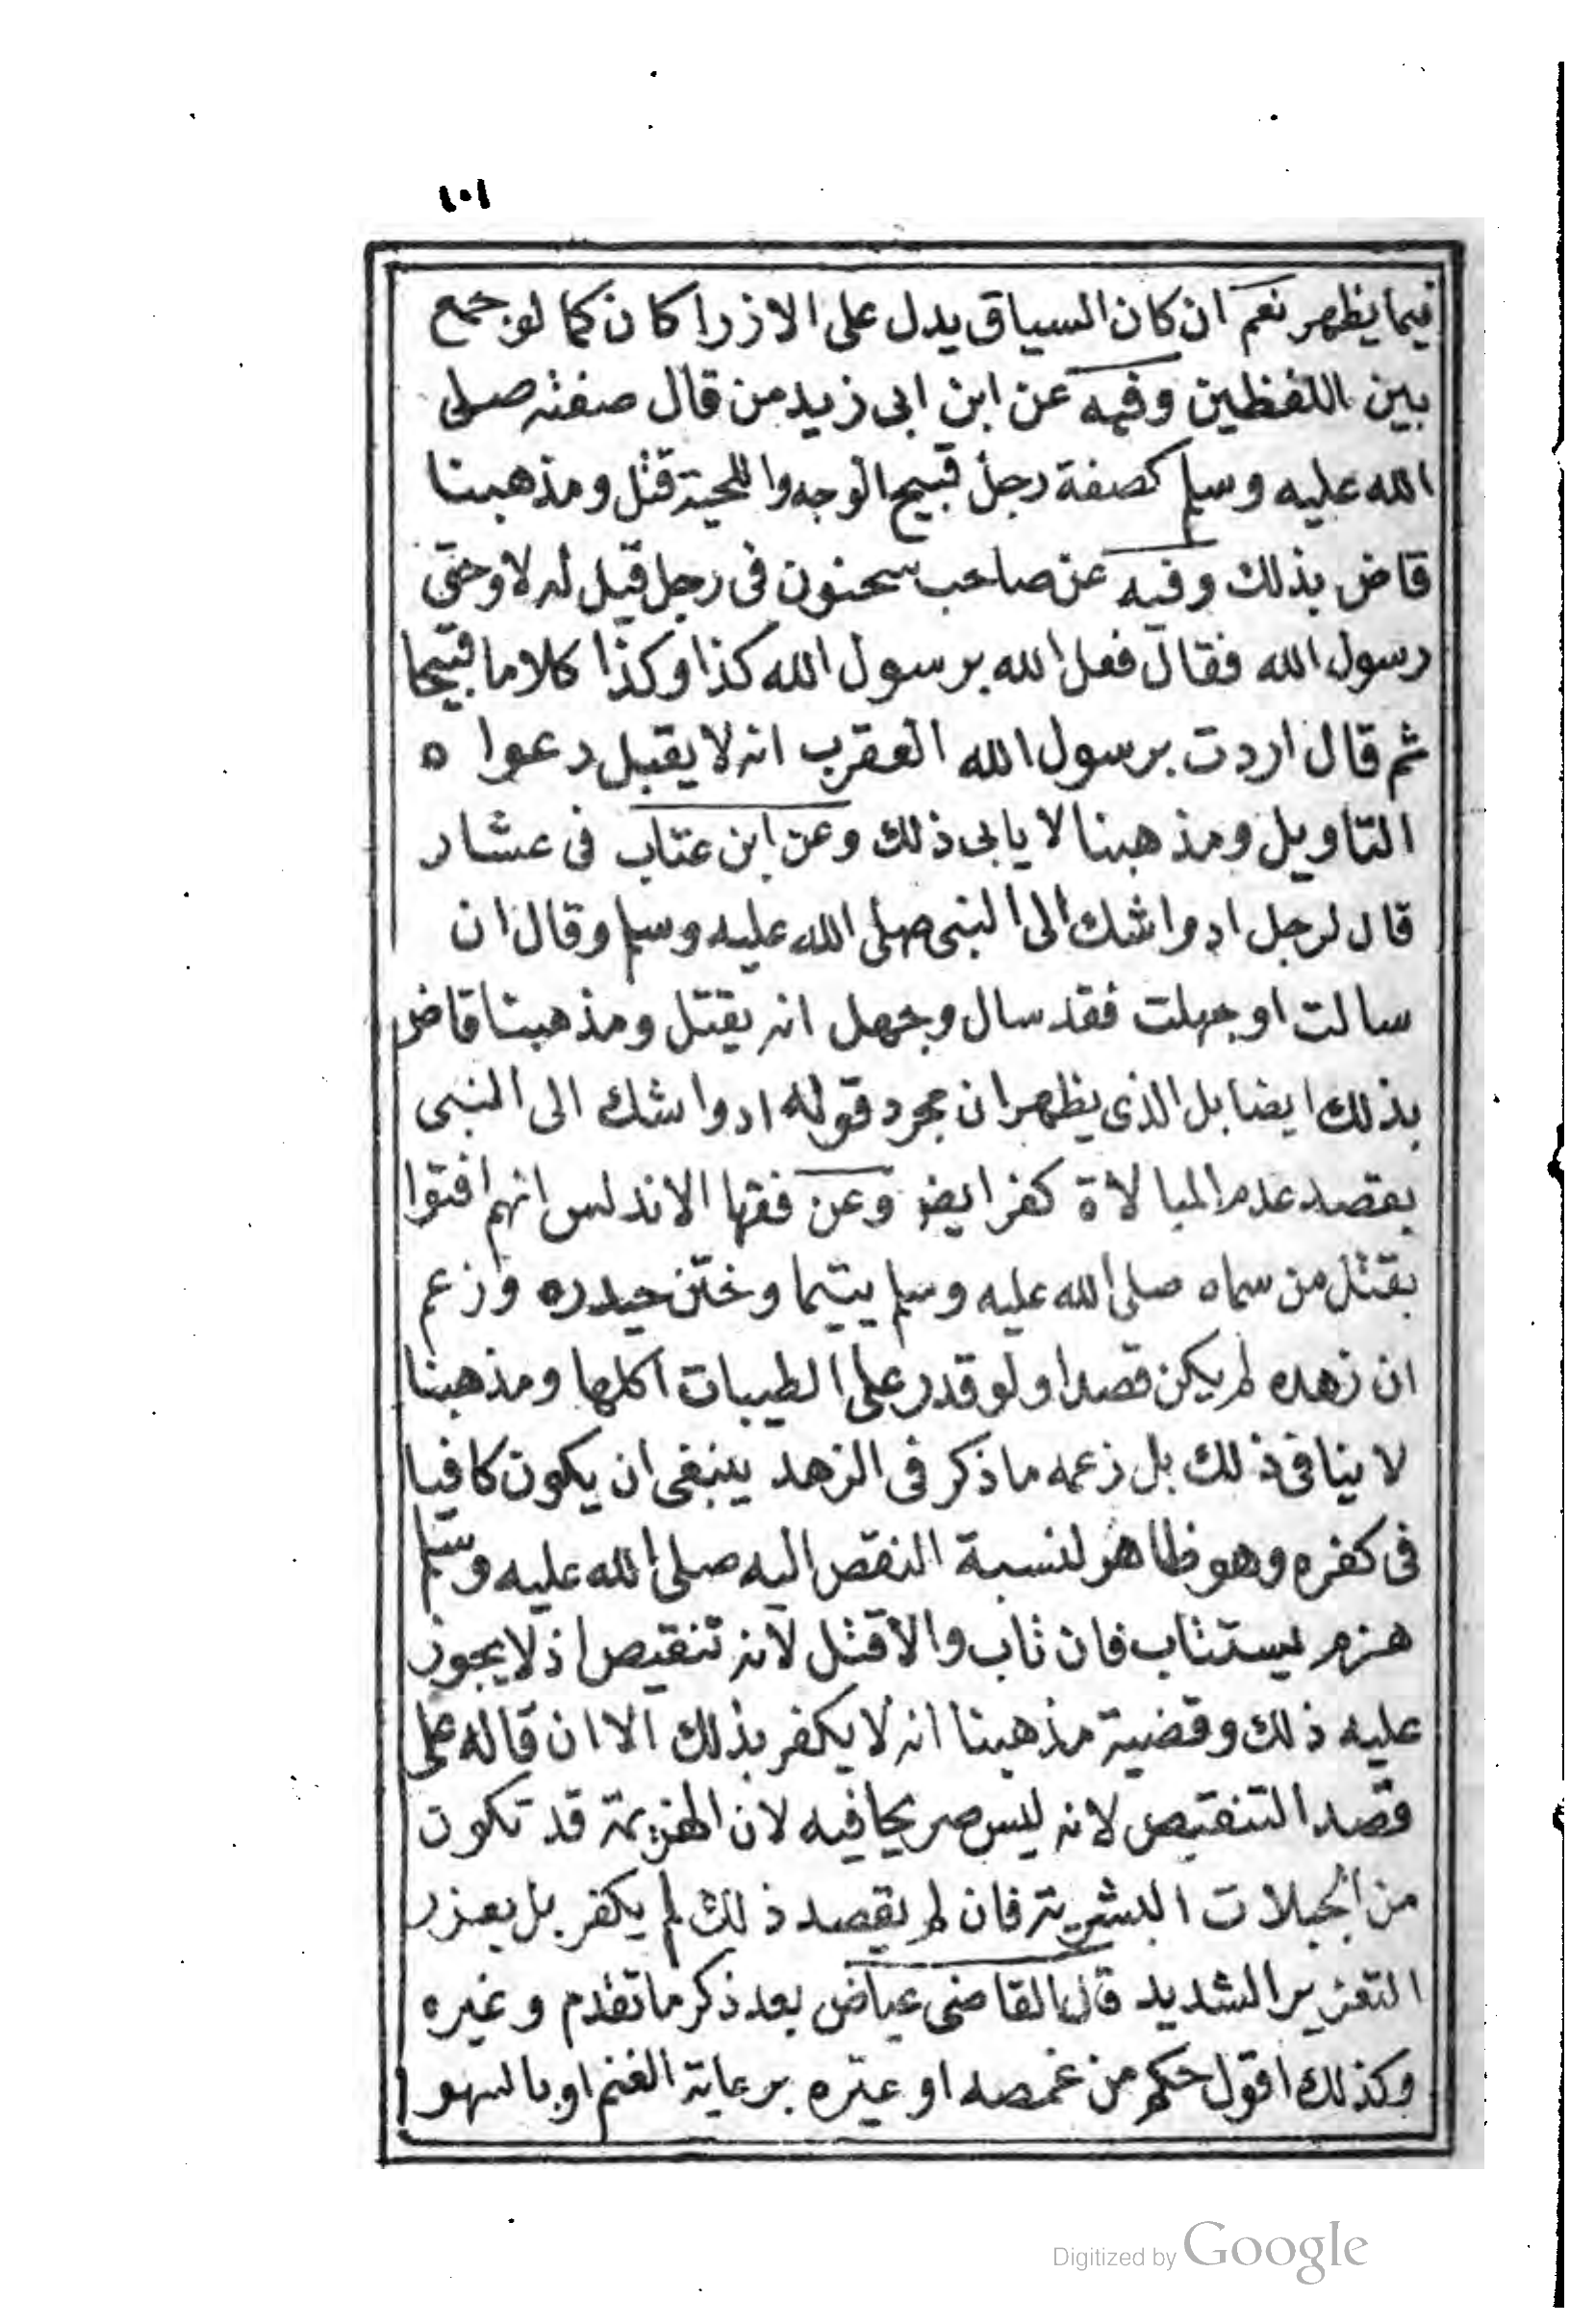 ١٠١
فيما يظهر نعم ان كان السياق يدل على الازرا كان كما لو جمع
بين اللفظين وفيه عن ابن ابى زيد من قال صفته صلى
الله عليه وسلم كصفة رجل قبيح الوجه واللحية قتل ومذهبنا
قاض بذلك وفيه عن صاحب سحنون فى رجل قيل له لا وحق
رسول الله فقال فعل الله برسول الله كذا وكذا كلاما قبيحا
ثم قال اردت برسول الله العقرب انه لا يقبل دعواه
التاويل ومذهبنا لا يابى ذلك وعن ابن عتاب فى عشار
قال لرجل اد واشك الى النبى صلى الله عليه وسلم وقال ان
سالت او جهلت فقد سال وجهل انه يقتل ومذهبنا قاض
بذلك ايضا بل الذى يظهر ان مجرد قوله اد واشك الى النبى
بقصد عدم المبالاة كفر ايضا وعن فقها الاندلس انهم افتوا
بقتل من سماه صلى الله عليه وسلم يتيما وختن حيدره وزعم
ان زهده لم يكن قصدا ولو قدر على الطيبات اكلها ومذهبنا
لا ينافى ذلك بل زعمه ما ذكر فى الزهد ينبغى ان يكون كافيا
فى كفره وهو ظاهر لنسبة النقص اليه صلى الله عليه وسلم
هزم يستتاب فان تاب والا قتل لانه تنقيص اذ لا يجوز
عليه ذلك وقضية مذهبنا انه لا يكفر بذلك الا ان قاله على
قصد التنقيص لانه ليس صريحا فيه لان الهزيمة قد تكون
من الجبلات البشرية فان لم يقصد ذلك لم يكفر بل يعزر
التعزير الشديد قال القاضى عياض بعد ذكر ما تقدم وغيره
وكذلك اقول حكم من غمصه او عيره برعاية الغنم او بالسهو
Digitized by Google